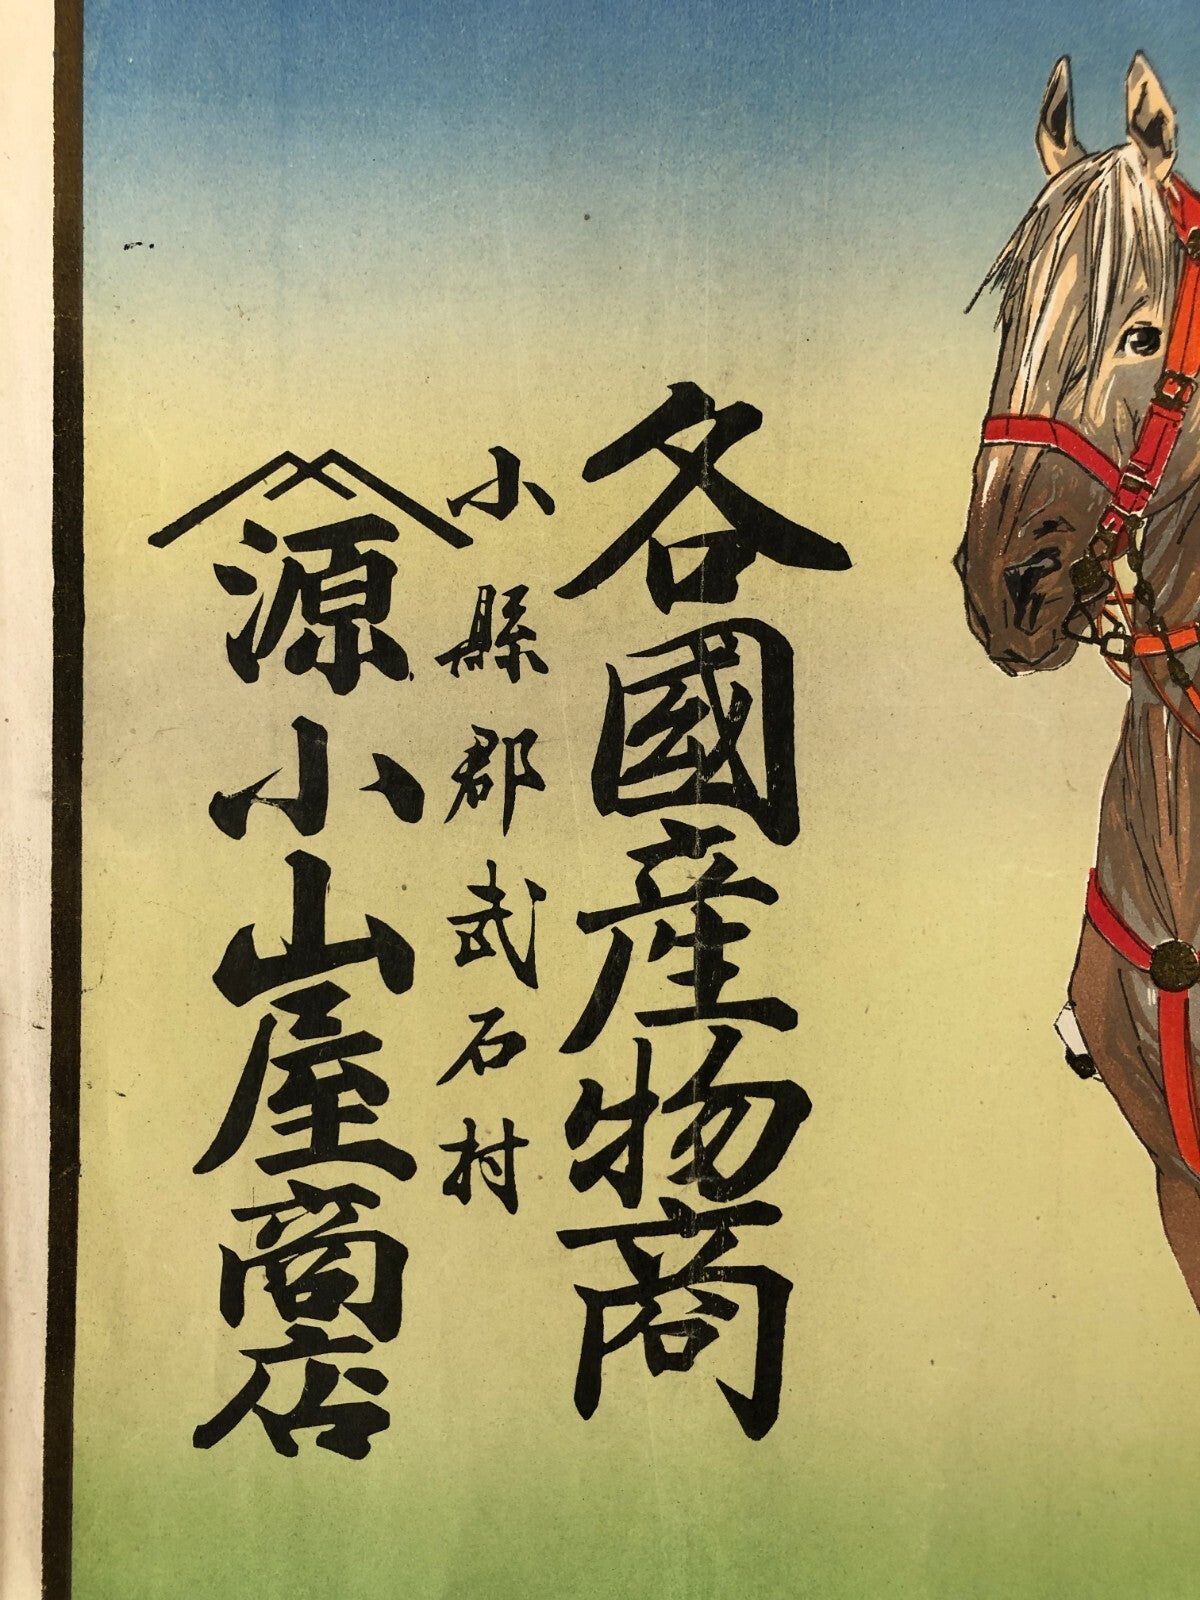 各國産物商
小縣郡武石村
源小山屋商店